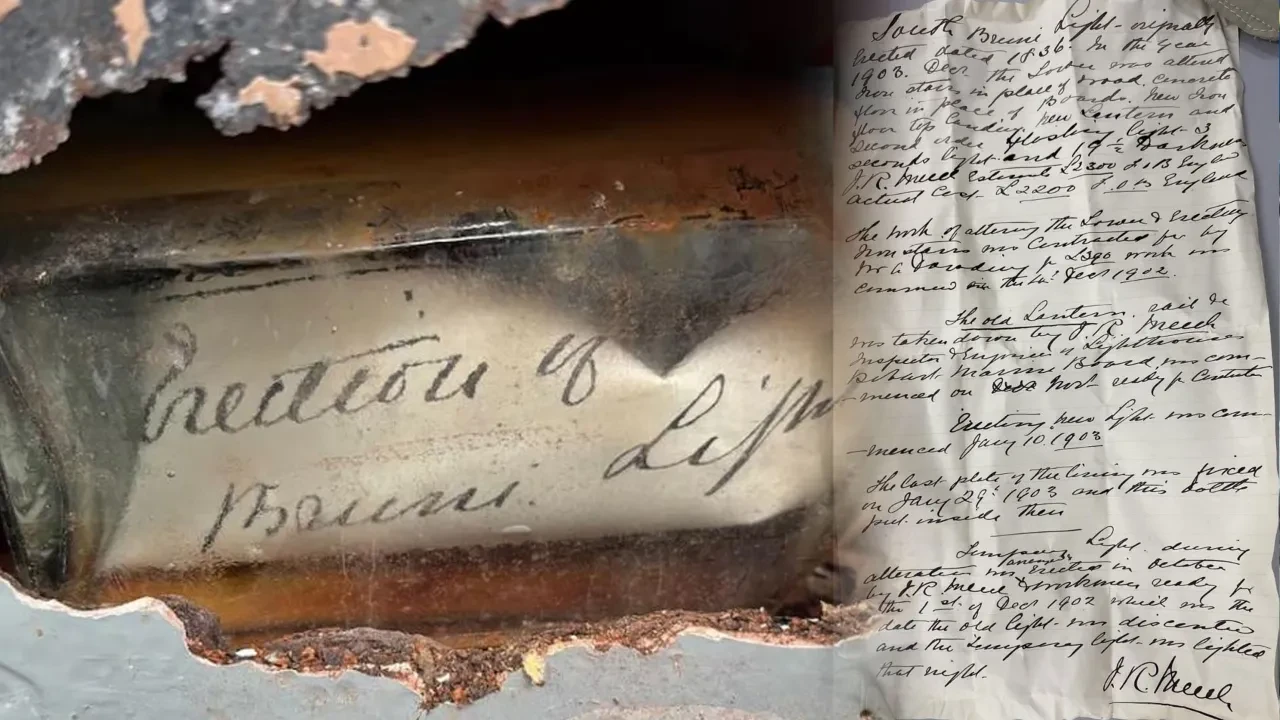 Erection of
Bruni. Light
South Bruni Light - originally
Erected dated 1836. In the year
1903. Decr the Tower was altered
Iron stairs in place of wood, concrete
floor in place of Boards. New Iron
floor top landing new Lantern and
Second order flashing light - 3
seconds light and 19½ Darkness
J.R. Meech Estimate £2300 England
actual cost £2200 England
The work of altering the Tower & Erecting
Iron stairs was Contracted for by
£390 work was
commenced on the 4th Decr 1902.
The old Lantern, rail &c
was taken down by J.R. Meech
Inspector & Engineer of Lighthouses
Hobart Marine Board was com-
-menced on work ready for
Erecting new Light was com-
-menced Jany 10 1903
The last plate of the lining was fixed
on Jany 29th 1903 and this bottle
put inside then
Temporary Light during
alteration was Erected in October
by J.R. Meech & workmen ready for
the 1st of Decr 1902 which was the
date the old light was
and the Temporary light was lighted
that night.
J.R. Meech